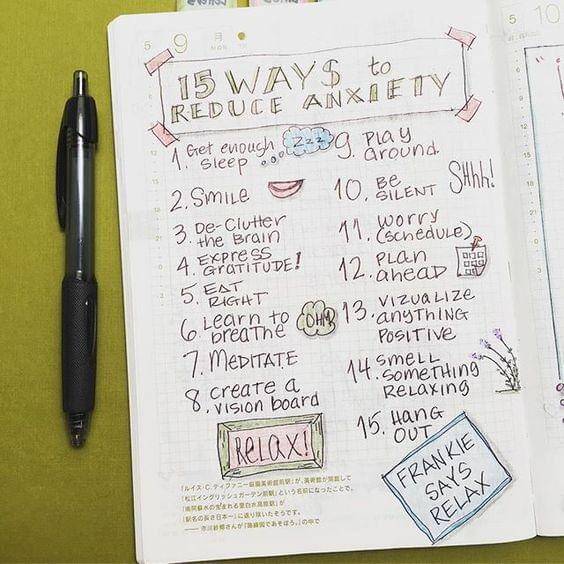 5 9 月
MON
5 10
15 WAYS to
REDUCE ANXIETY
1. Get enough
sleep ... Zzz
2. SMILE
3. DE-CLUTTER
the BRAIN
4. EXPRESS
GRATITUDE!
5. EAT
RIGHT
6. LEARN to
breathe OHM
7. MEDITATE
8. create a
vision board
RELAX!
9. PLAY
around
10. BE
SILENT Shhh!
11. WORRY
(schedule)
12. PLAN
ahead
13. VIZUALIZE
anything
POSITIVE
14. smell
something
Relaxing
15. HANG
OUT
FRANKIE
SAYS
RELAX
「ルイス・C.ティファニー庭園美術館前駅」が、美術館が閉館して
「松江イングリッシュガーデン前駅」という名前になったことで、
「南阿蘇水の生まれる里白水高原駅」が
「駅名の長さ日本一」に返り咲いたそうです。
—— 市川紗椰さんが『路線図であそぼう。』の中で